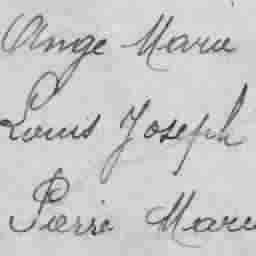 Ange Marie
Louis Joseph
Pierre Marie